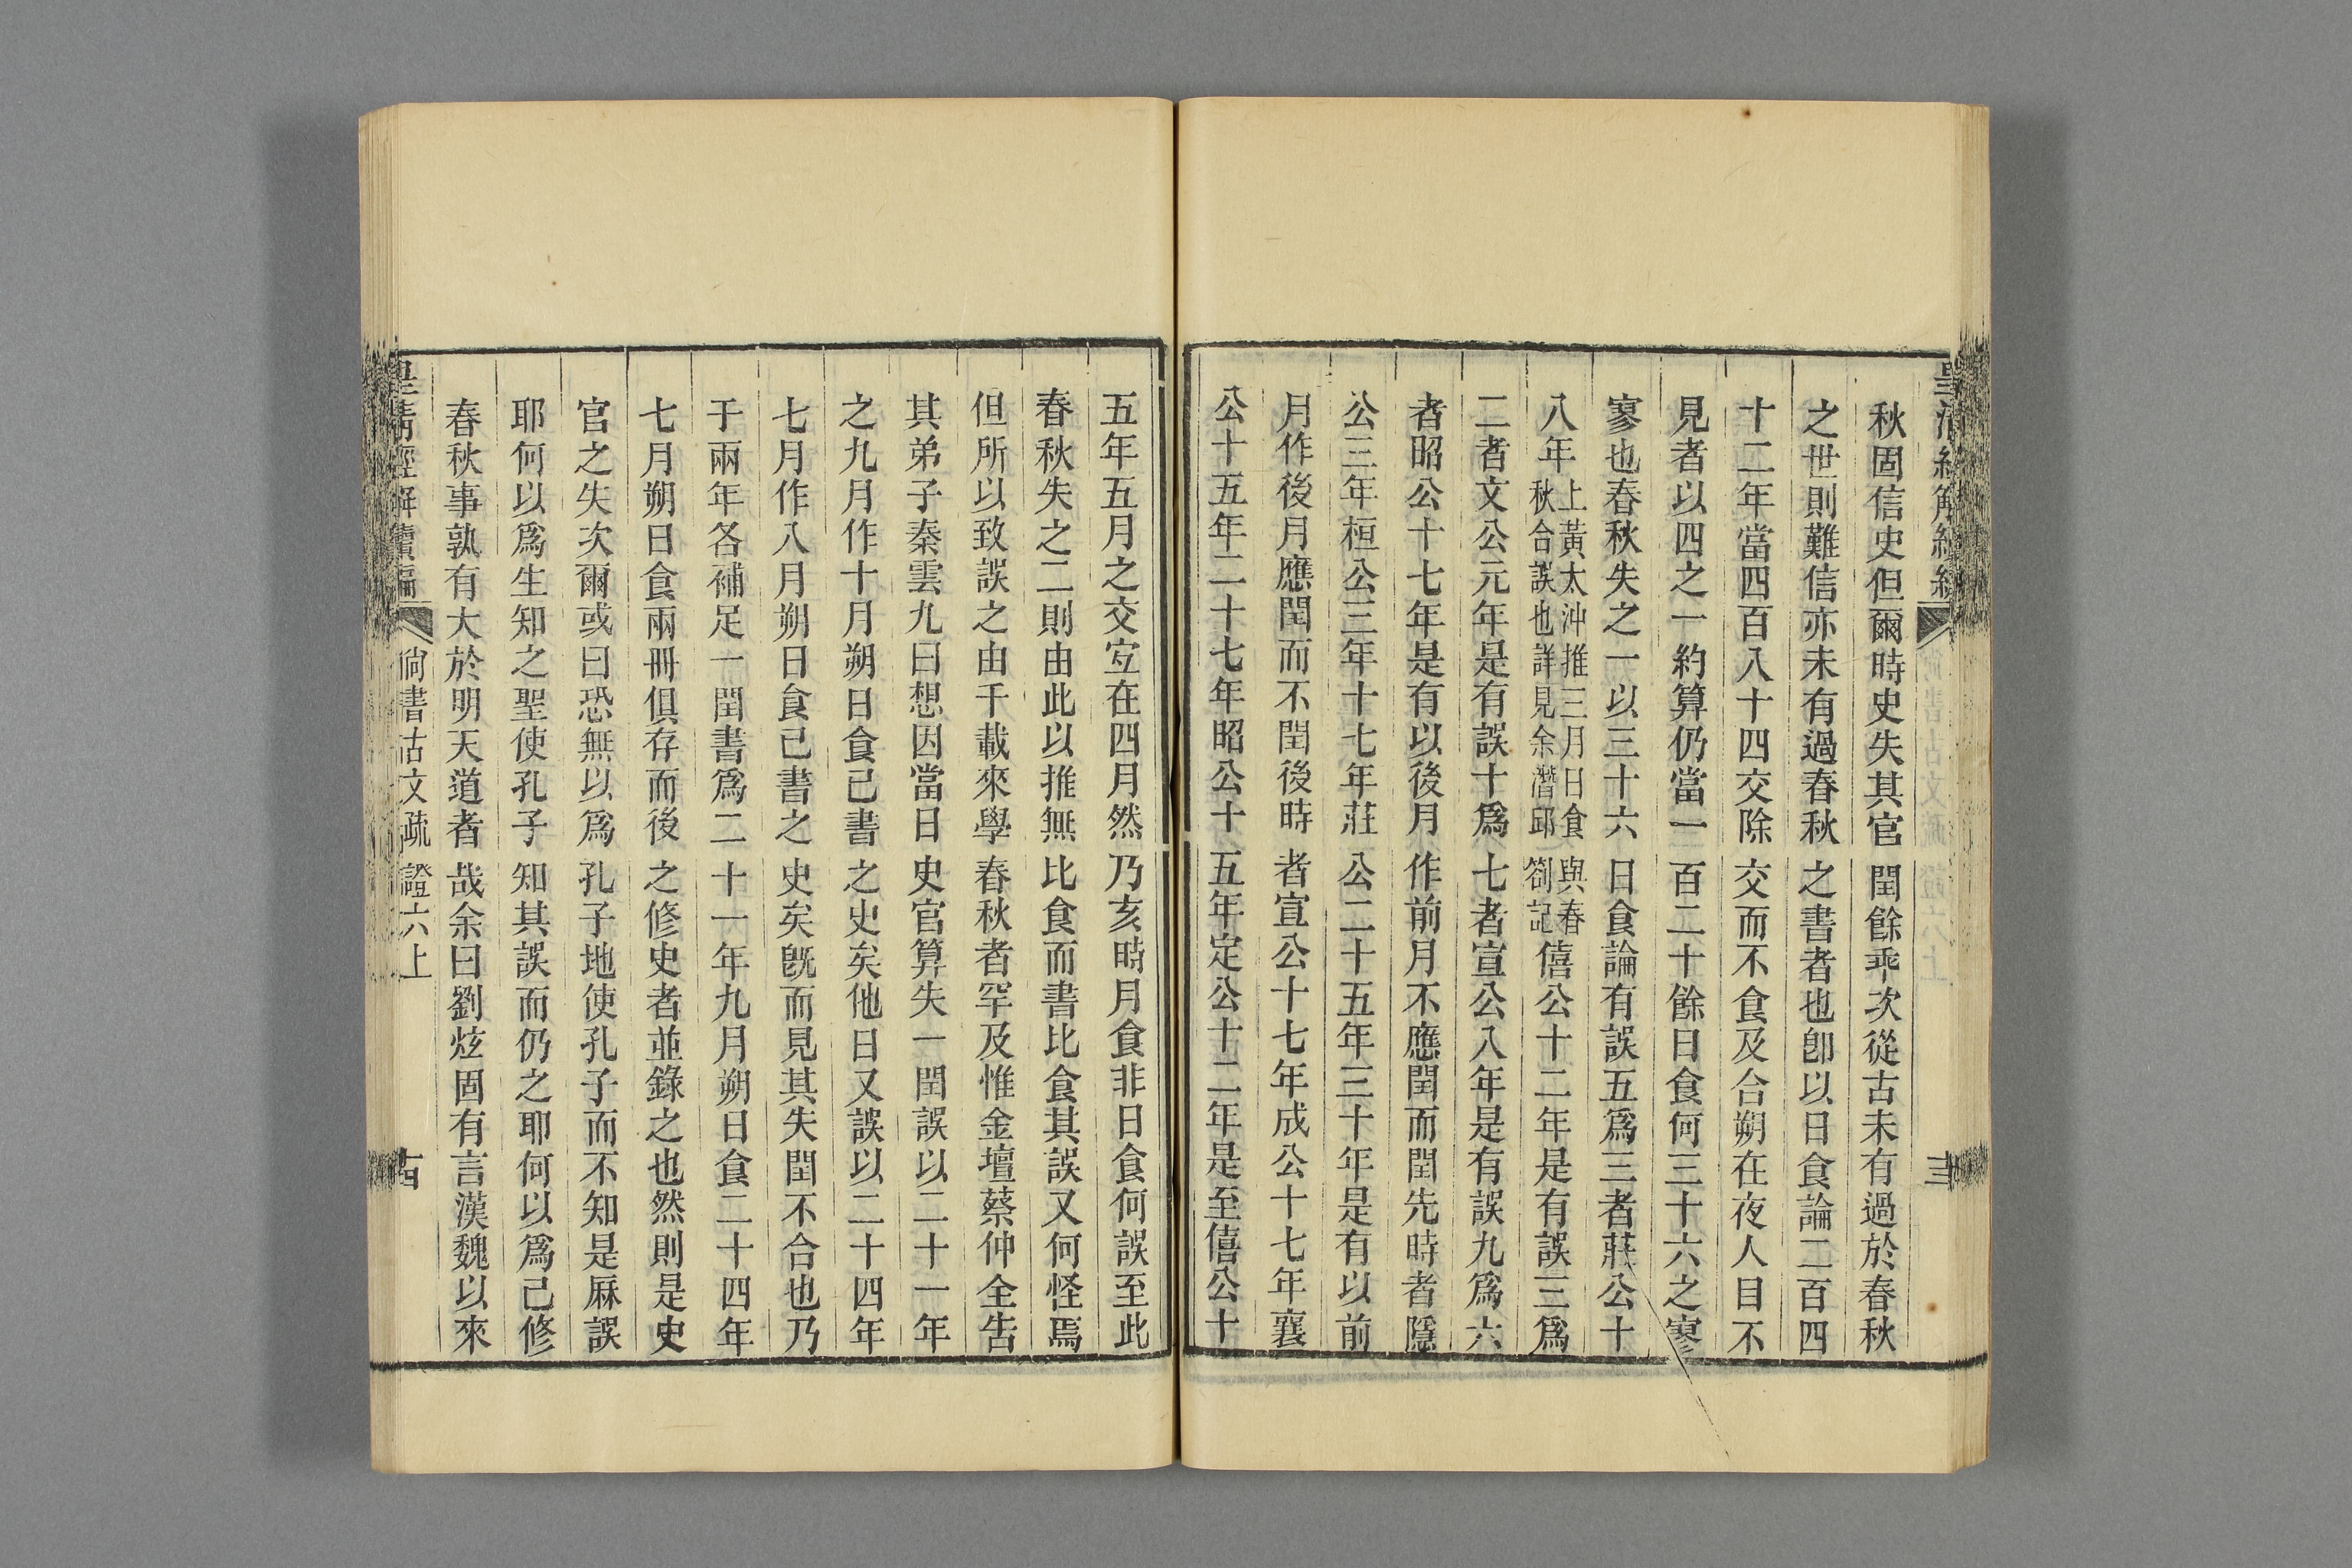 秋固信史但爾時史失其官閏餘乖次從古未有過於春秋
之世則難信亦未有過春秋之書者也卽以日食論二百四
十二年當四百八十四交除交而不食及合朔在夜人目不
見者以四之一約算仍當一百二十餘日食何三十六之寥
寥也春秋失之一以三十六日食論有誤五爲三者莊公十
八年上黃太沖推三月日食與春秋合誤也詳見余潛邱劄記僖公十二年是有誤三爲
二者文公元年是有誤十爲七者宣公八年是有誤九爲六
者昭公十七年是有以後月作前月不應閏而閏先時者隱
公三年桓公三年十七年莊公二十五年三十年是有以前
月作後月應閏而不閏後時者宣公十七年成公十七年襄
公十五年二十七年昭公十五年定公十二年是至僖公十
五年五月之交宜在四月然乃亥時月食非日食何誤至此
春秋失之二則由此以推無比食而書比食其誤又何怪焉
但所以致誤之由千載來學春秋者罕及惟金壇蔡仲全告
其弟子秦雲九曰想因當日史官算失一閏誤以二十一年
之九月作十月朔日食已書之史矣他日又誤以二十四年
七月作八月朔日食已書之史矣旣而見其失閏不合也乃
于兩年各補足一閏書爲二十一年九月朔日食二十四年
七月朔日食兩冊俱存而後之修史者並錄之也然則是史
官之失次爾或曰恐無以爲孔子地使孔子而不知是厤誤
耶何以爲生知之聖使孔子知其誤而仍之耶何以爲己修
春秋事孰有大於明天道者哉余曰劉炫固有言漢魏以來
皇清經解續編 尙書古文疏證六上 古